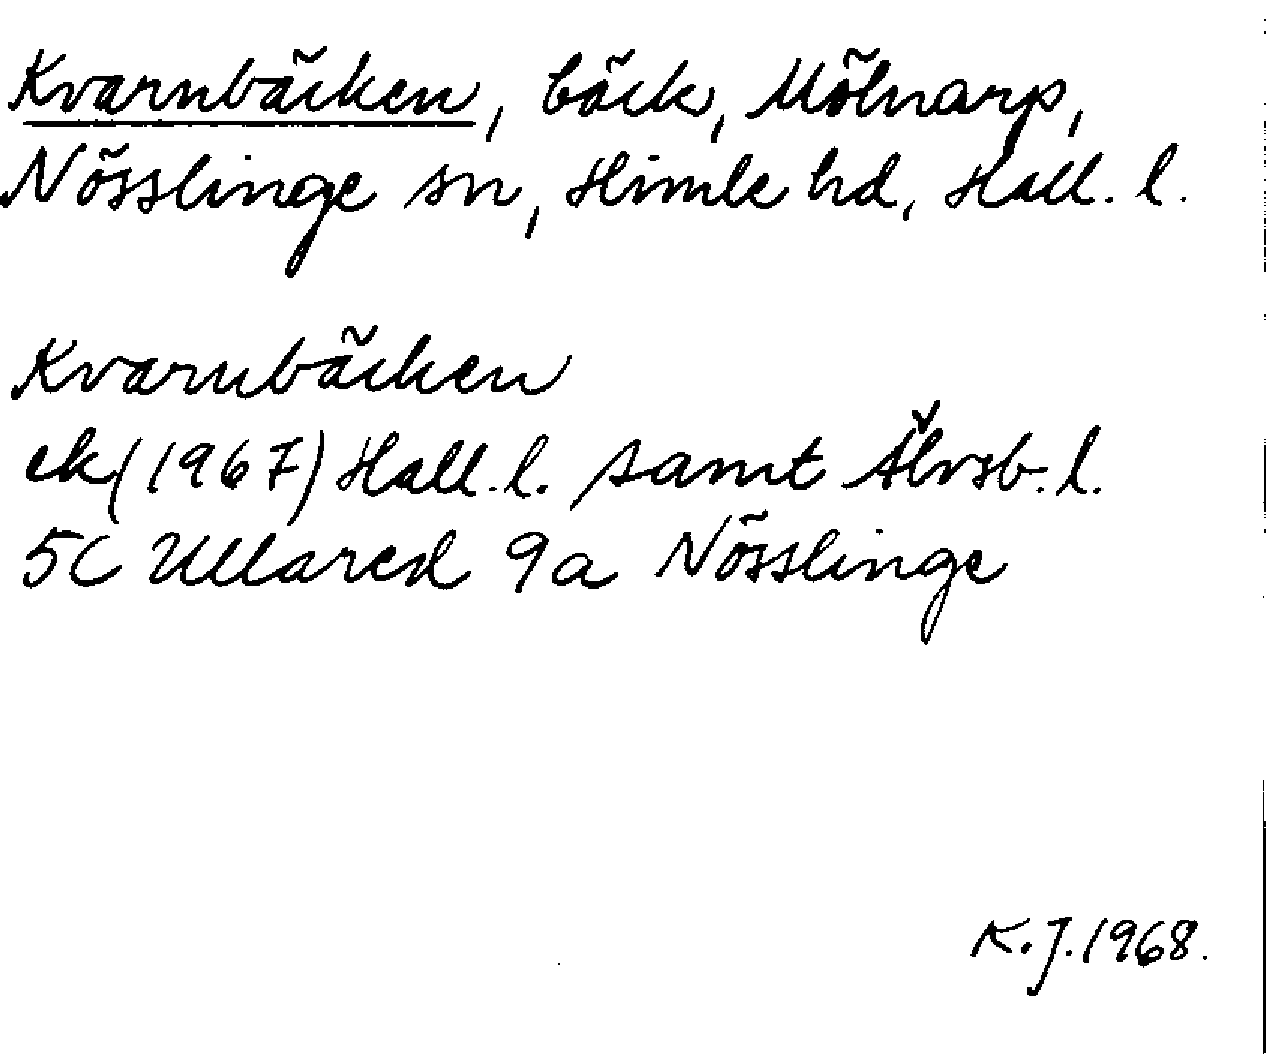 Kvarnbäcken, bäck, Mölnarp,
Nösslinge sn, Himle hd, Hall. l.
Kvarnbäcken
ek (1967) Hall. l. samt Älvsb. l.
5C Ullared 9a Nösslinge
K.J. 1968.